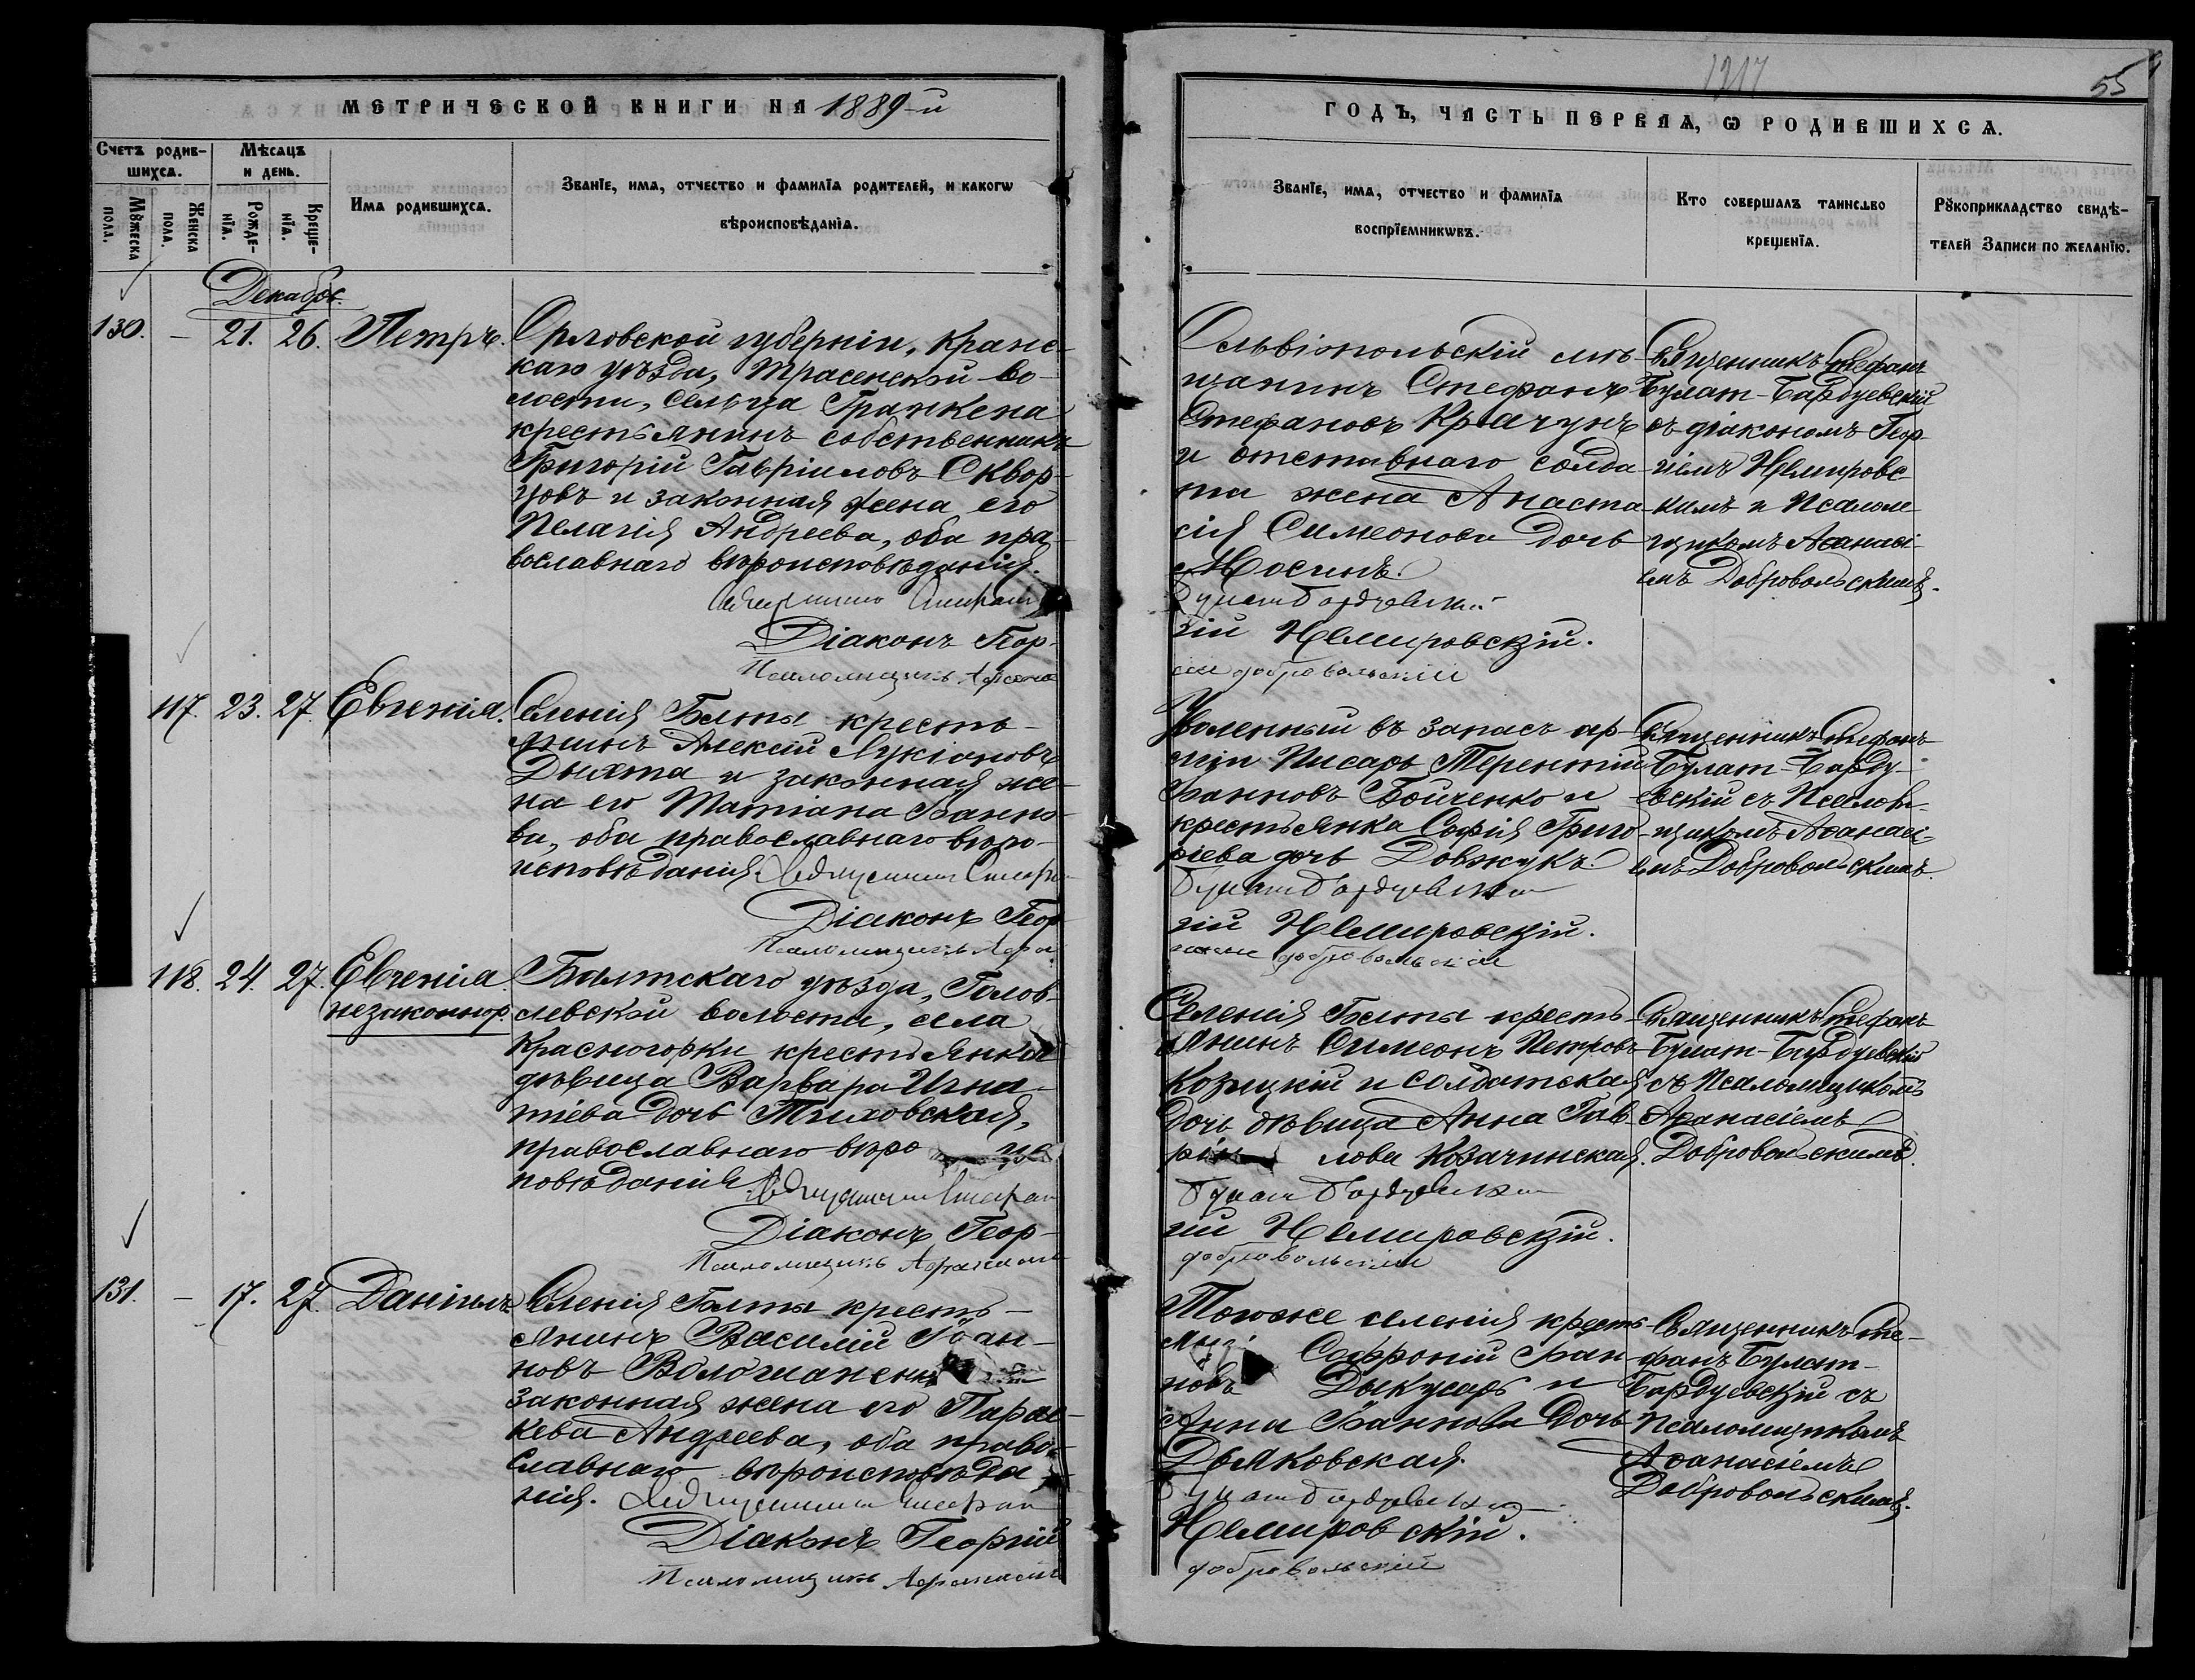 1217
55
МЕТРИЧЕСКОЙ КНИГИ НА 1889-й
ГОДЪ, ЧАСТЬ ПЕРВАЯ, Ѡ РОДИВШИХСѦ.
Счетъ родив-
шихсѧ.
Мѣсѧцъ
и день.
Мꙋжеска
пола.
Женска
пола.
Рожде-
нїѧ.
Креще-
нїѧ.
Имѧ родившихсѧ.
Званїе, имѧ, отчество и фамилїѧ родителей, и какогѡ
вѣроисповѣданїѧ.
Званїе, имѧ, отчество и фамилїѧ
воспрїемникѡвъ.
Кто совершалъ таинство
крещенїѧ.
Рꙋкоприкладство свидѣ-
телей Записи по желанїю.
Декабрь.
130. – 21. 26. Петръ.
Орловской губерніи, Кранс-
каго уѣзда, Трасенской во-
лости, сельца Гранкена
крестьянинъ собственникъ
Григорій Гавріиловъ Сквор-
цовъ и законная жена его
Пелагія Андреева, оба пра-
вославнаго вѣроисповѣданія.
Діаконъ Геор-
Псаломщикъ Афана
Ольвіопольскій мѣ-
щанинъ Стефанъ
Стефановъ Крачунъ
и отставнаго солда-
та жена Анаста-
сія Симеонова дочь
Мосинъ.
Булатъ Бардуевскій
гій Немировскій.
сій Добровольскій
Священникъ Стефанъ
Булат-Бардуевскій
съ діакономъ Геор-
гіемъ Немировс-
кимъ и Псалом-
щикомъ Аѳанасі-
емъ Добровольскимъ.
117. 23. 27. Евгенія.
Селенія Балты кресть-
янинъ Алексій Лукіановъ
Дыхта и законная же-
на его Татіана Іоанно-
ва, оба православнаго вѣро-
исповѣданія.
Діаконъ Геор-
Псаломщикъ Афа
Уволенный въ запасъ ар-
міи Писарь Терентій
Іоанновъ Бойченко и
крестьянка Софія Григо-
ріева дочь Довжукъ.
Булатъ Бардуевскій
гій Немировскій.
Добровольскій
Священникъ Стефанъ
Булат-Барду-
евскій съ Псалом-
щикомъ Аѳанасі-
емъ Добровольскимъ.
118. 24. 27. Евгенія
незаконнор
Балтскаго уѣзда, Голов-
левской волости, села
Красногорки крестьянка
дѣвица Варвара Игна-
тіева дочь Тиховская,
православнаго вѣро ис
повѣданія
Діаконъ Геор-
Псаломщикъ Афанасій
Селенія Балты кресть-
янинъ Симеонъ Петровъ
Козицкій и солдатская
дочь дѣвица Анна Гав-
ріи лова Козачинская.
Булатъ Бардуевскій
гій Немировскій.
Добровольскій
Священникъ Стефанъ
Булат-Бардуевскій
съ Псаломщикомъ
Аѳанасіемъ
Добровольскимъ.
131. – 17. 27. Даніилъ
Селенія Балты кресть-
янинъ Василій Іоан-
новъ
законная жена его Парас-
кева Андреева, оба право-
славнаго вѣроисповѣда-
нія.
Діаконъ Георгій
Псаломщикъ Афанасій
Тогоже селенія кресть-
Софроній Іоан-
новъ Дыкусарь и
Анна Іоаннова дочь
Дьяковская.
Булатъ Бардуевскій
Немировскій.
Добровольскій
Священникъ Сте-
фанъ Булат-
Бардуевскій съ
Псаломщикомъ
Аѳанасіемъ
Добровольскимъ.